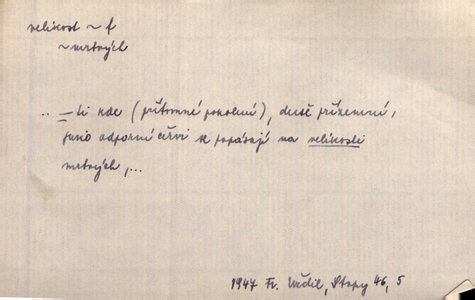 velikost ~ f
~ mrtvých
.. — Ti zde (přítomné pokolení), duše přízemní,
jako odporní červi se popásají na velikosti
mrtvých,...
1947 Fr. Stopy 46, 5